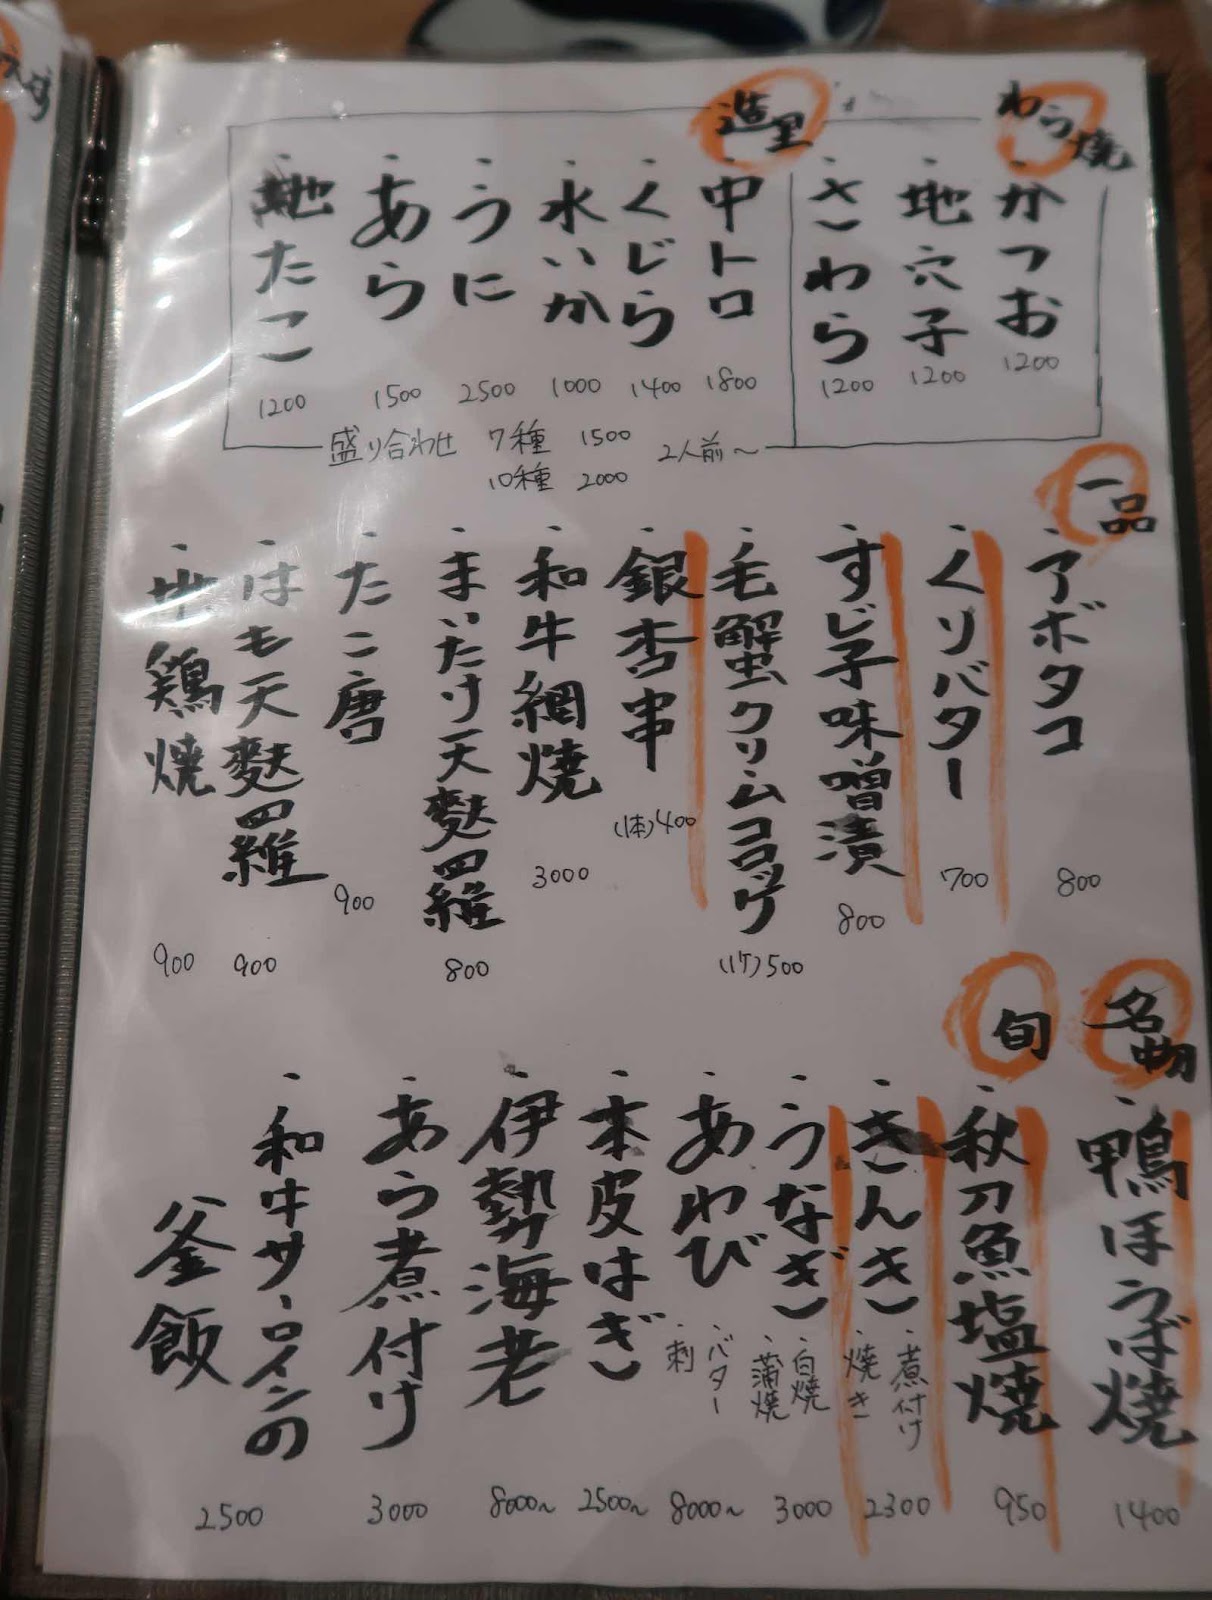 わら焼
・かつお 1200
・地穴子 1200
・さわら 1200
造里
・中トロ 1800
・くじら 1400
・水いか 1000
・うに 2500
・あら 1500
・地たこ 1200
盛り合わせ 7種 1500
10種 2000
2人前〜
一品
・アボタコ 800
・くりバター 700
・すじ子味噌漬 800
・毛蟹クリームコロッケ (1ケ)500
・銀杏串 (1本)400
・和牛網焼 3000
・まいたけ天麩羅 800
・たこ唐 900
・はも天麩羅 900
・地鶏焼 900
名物
・鴨ほうば焼 1400
旬
・秋刀魚塩焼 950
・きんき ・煮付け ・焼き 2300
・うなぎ ・白焼 ・蒲焼 3000
・あわび ・バター ・刺 8000〜
・本皮はぎ 2500〜
・伊勢海老 8000〜
・あら煮付け 3000
・和牛サーロインの
釜飯 2500